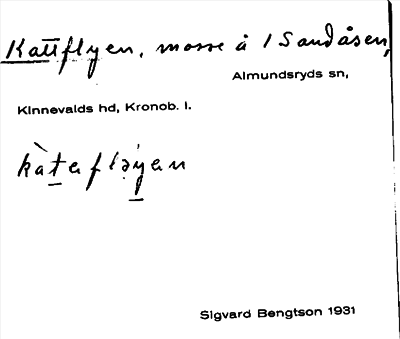 Kattflyen, mosse å 1 Sandåsen,
Almundsryds sn,
Kinnevalds hd, Kronob. l.
Sigvard Bengtson 1931